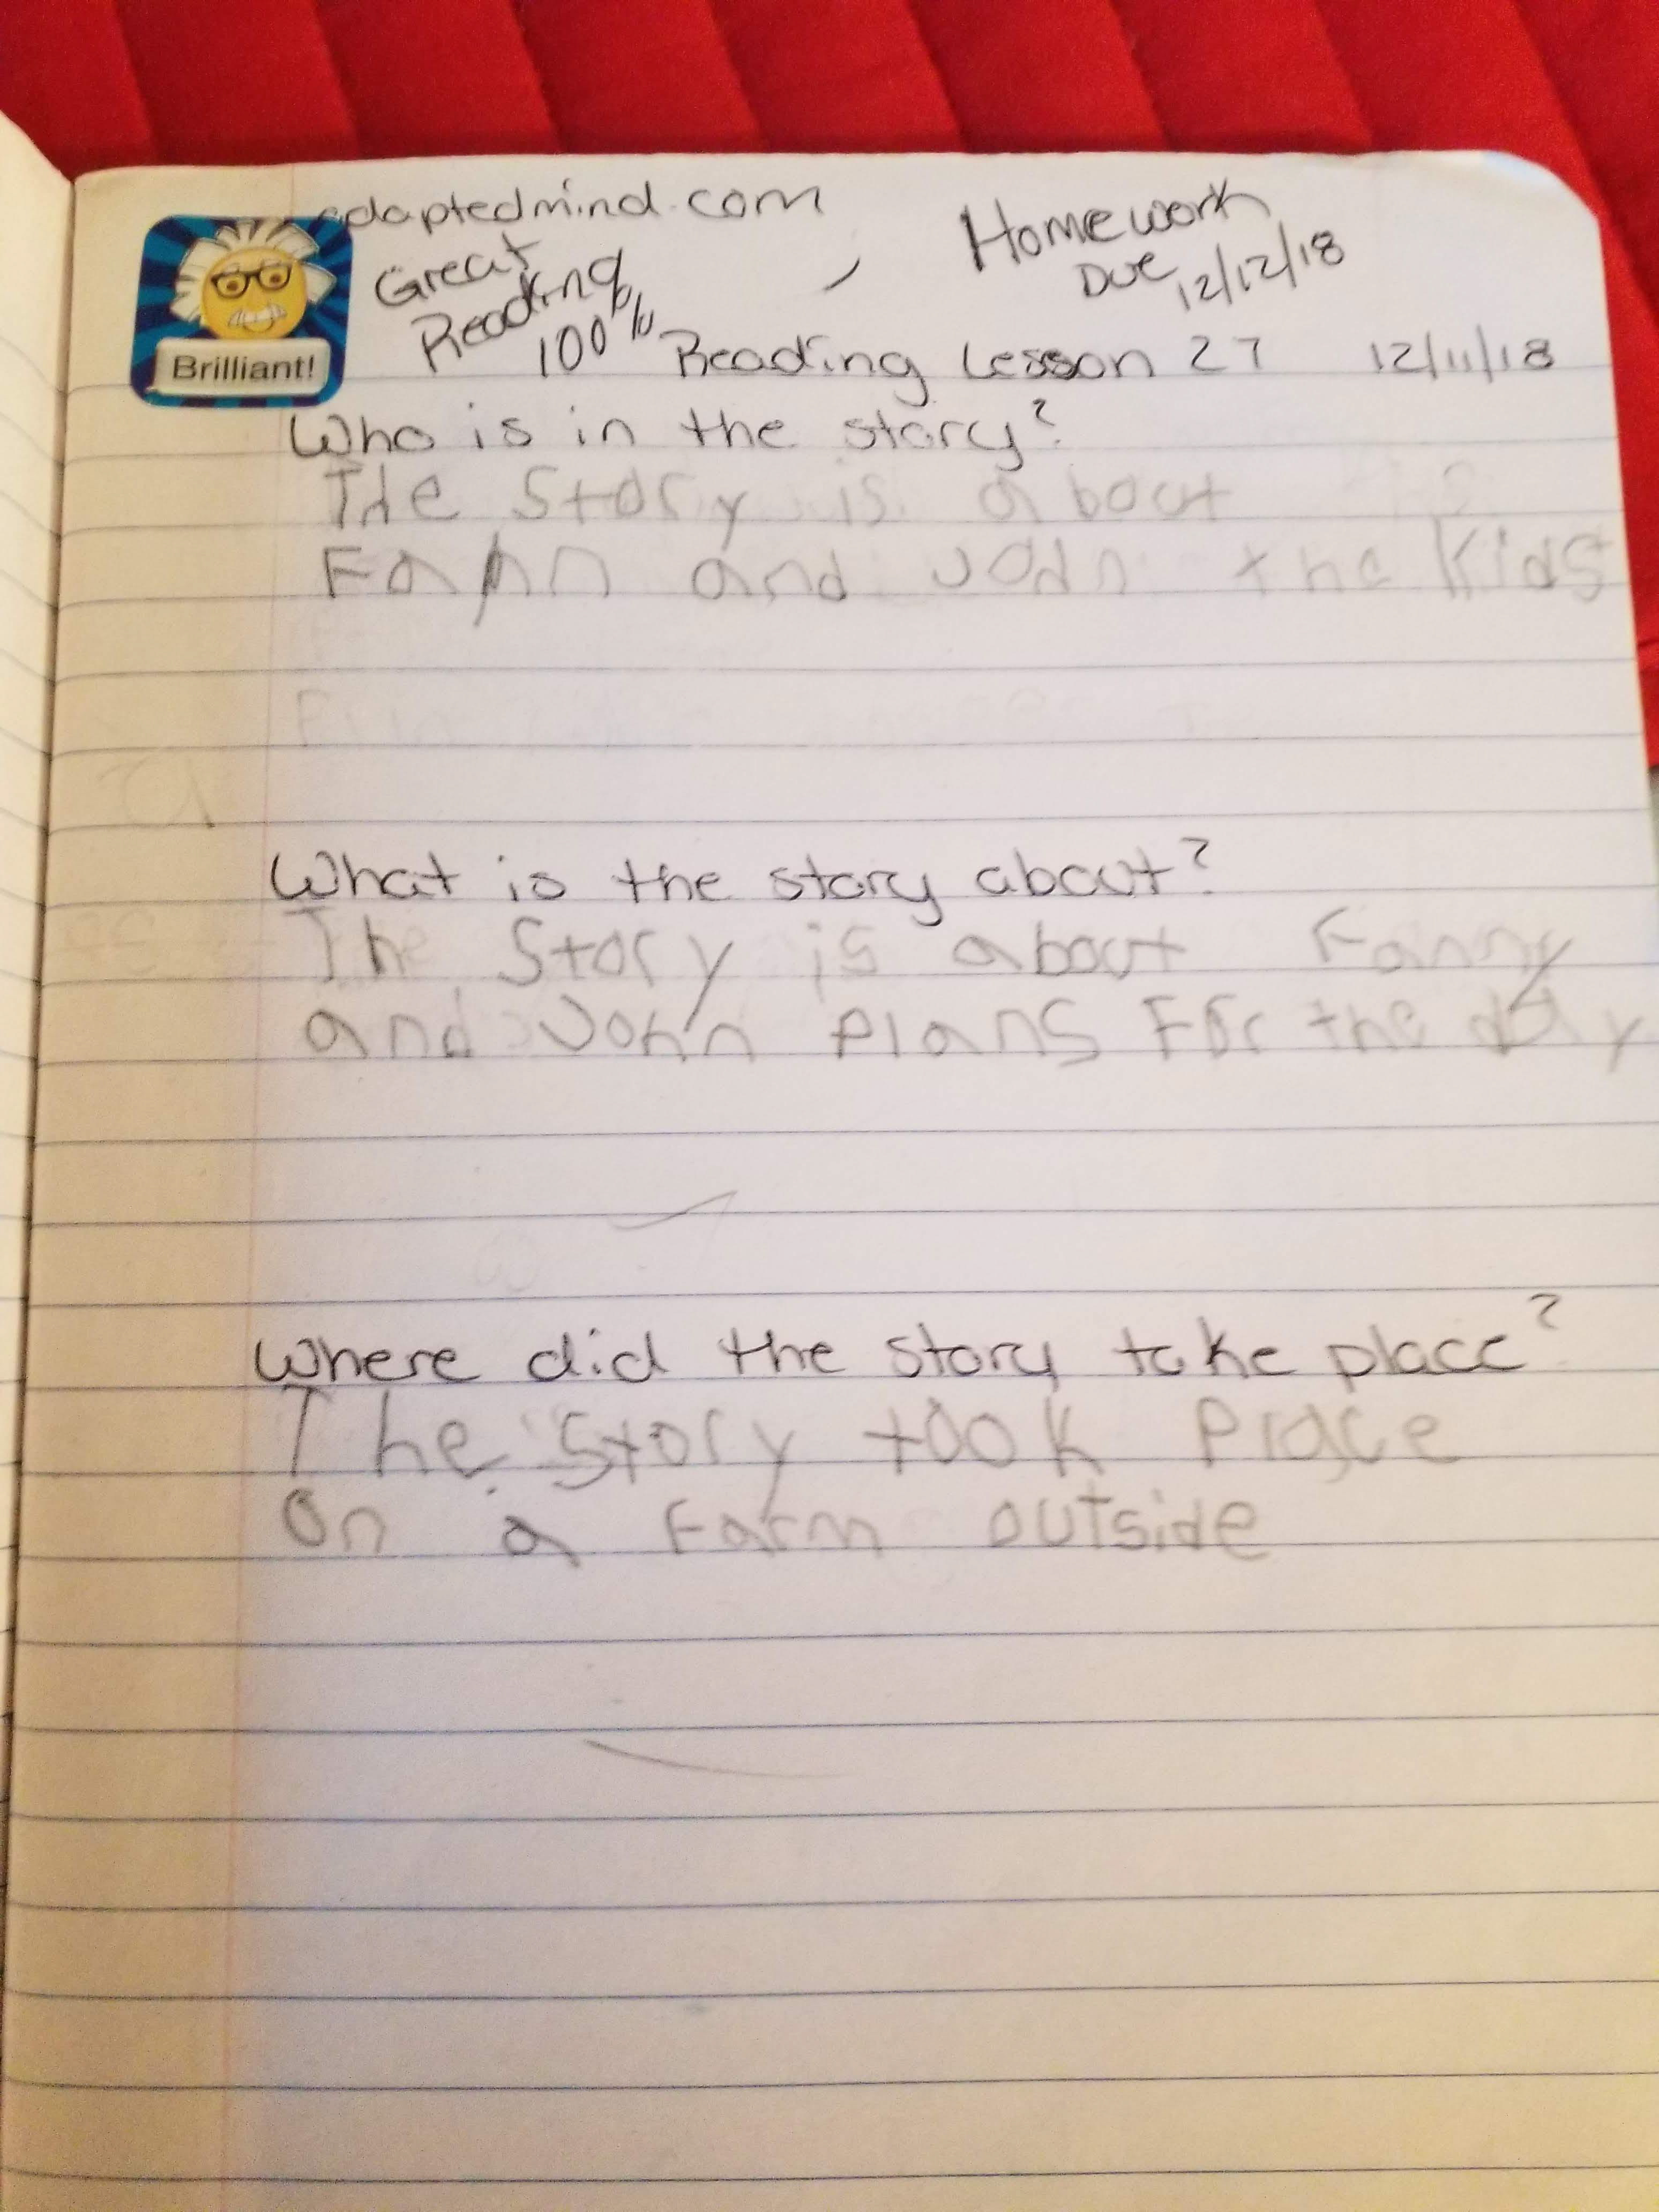 adaptedmind.com
Great
Reading
100%
Homework
Due 12/12/18
Brilliant!
Reading Lesson 27 12/11/18
Who is in the story?
The Story is about
and the Kids
What is the story about?
The Story is about Fanny
and John Plans For the day
Where did the story take place?
The Story took Place
On a Farm outside